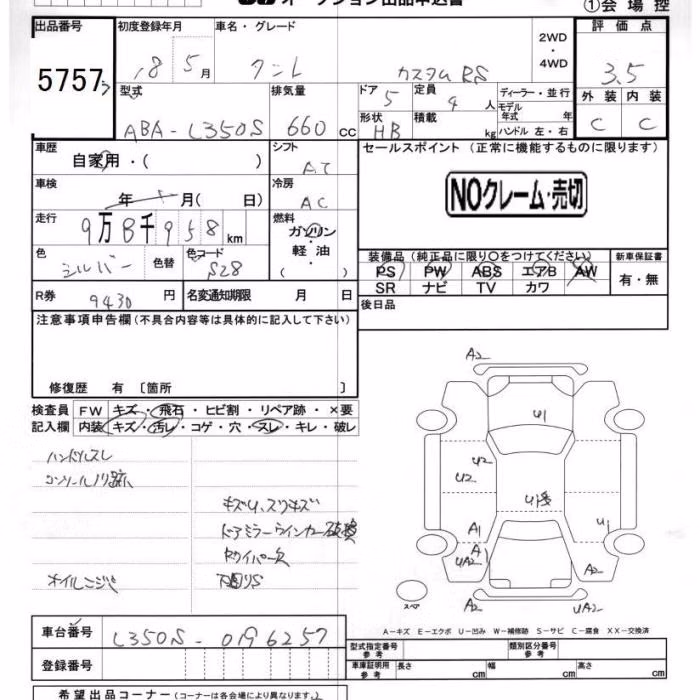 オークション出品申込書 ①会場控
出品番号 初度登録年月 車名・グレード 2WD・4WD 評価点
5757 18 5月 タント カスタムRS 3.5
型式 排気量 ドア 定員 ディーラー・並行 外装 内装
ABA-L350S 660 CC 5 4人 モデル年式 年 C C
形状 積載 ハンドル 左・右
HB kg
車歴 シフト セールスポイント (正常に機能するものに限ります)
自家用・( ) AT
車検 冷房
年 月( 日) AC NOクレーム・売切
走行 燃料
9万8千958km ガソリン
軽油
( )
色 色替 色コード 装備品 (純正品に限り○をつけてください) 新車保証書
シルバー S28 PS PW ABS エアB AW 有・無
SR ナビ TV カワ
R券 9430円 名変通知期限 月 日 後日品
注意事項申告欄 (不具合内容等は具体的に記入して下さい)
修復歴 有 [箇所 ]
検査員 FW キズ・飛石・ヒビ割・リペア跡・×要
記入欄 内装 キズ・汚レ・コゲ・穴・スレ・キレ・破レ
ハンドルスレ
コンソールノリ跡
キズU、スリキズ
ドアミラーウインカー破損
Rワイパー欠
オイルニジミ 下廻りS
A2
U1
U2
U2
U1
A1
U1
A
UA2
A2
A2
UA2
スペア
A-キズ E-エクボ U-凹み W-補修跡 S-サビ C-腐食 XX-交換済
車台番号 L350S-0196257
登録番号
型式指定番号 参考 類別区分番号 参考
車庫証明用 参考 長さ cm 幅 cm 高さ cm
希望出品コーナー (コーナーは各会場により異なります。)